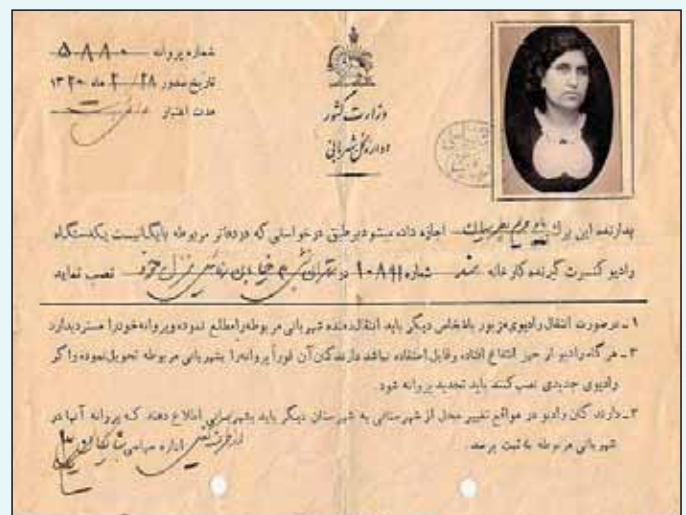 شماره پروانه ۵۸۸۰
تاریخ صدور ۲۸ ماه ۲ ۱۳۲۰
مدت اعتبار
وزارت کشور
اداره کل شهربانی
بدارنده این برک بانو اجازه داده میشود برطبق درخواستی که در دفاتر مربوطه بایگانیست یکدستگاه
رادیو کنسرت گیرنده کارخانه شماره ۱۰۸۴۱ در تهران خیابان منزل خود نصب نماید
۱ـ در صورت انتقال رادیوی مزبور باشخاص دیگر باید انتقال دهنده شهربانی مربوطه را مطلع نموده و پروانه خود را مسترد بدارد
۲ـ هر گاه رادیو از حیز انتفاع افتاده و قابل استفاده نباشد دارندکان آن فوراً پروانه را بشهربانی مربوطه تحویل نموده و اکر
رادیوی جدیدی نصب کنند باید تجدید پروانه شود.
۳ـ دارندکان رادیو در مواقع تغییر محل از شهرستانی به شهرستان دیگر باید بشهربانی اطلاع دهند که پروانه آنها در
شهربانی مربوطه به ثبت برسد.
اداره سیاسی